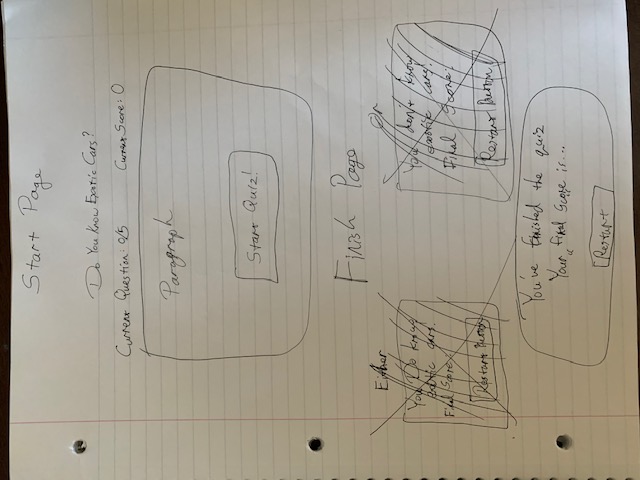 Start Page
Do You Know Exotic Cars?
Current Question: 0/5 Current Score: 0
Paragraph
Start Quiz!
Finish Page
Either
You Do know
exotic cars!
Final Score:
Restart Button
Or
You don't know
exotic cars!
Final Score:
Restart Button
You've finished the quiz
Your "final score" is...
Restart